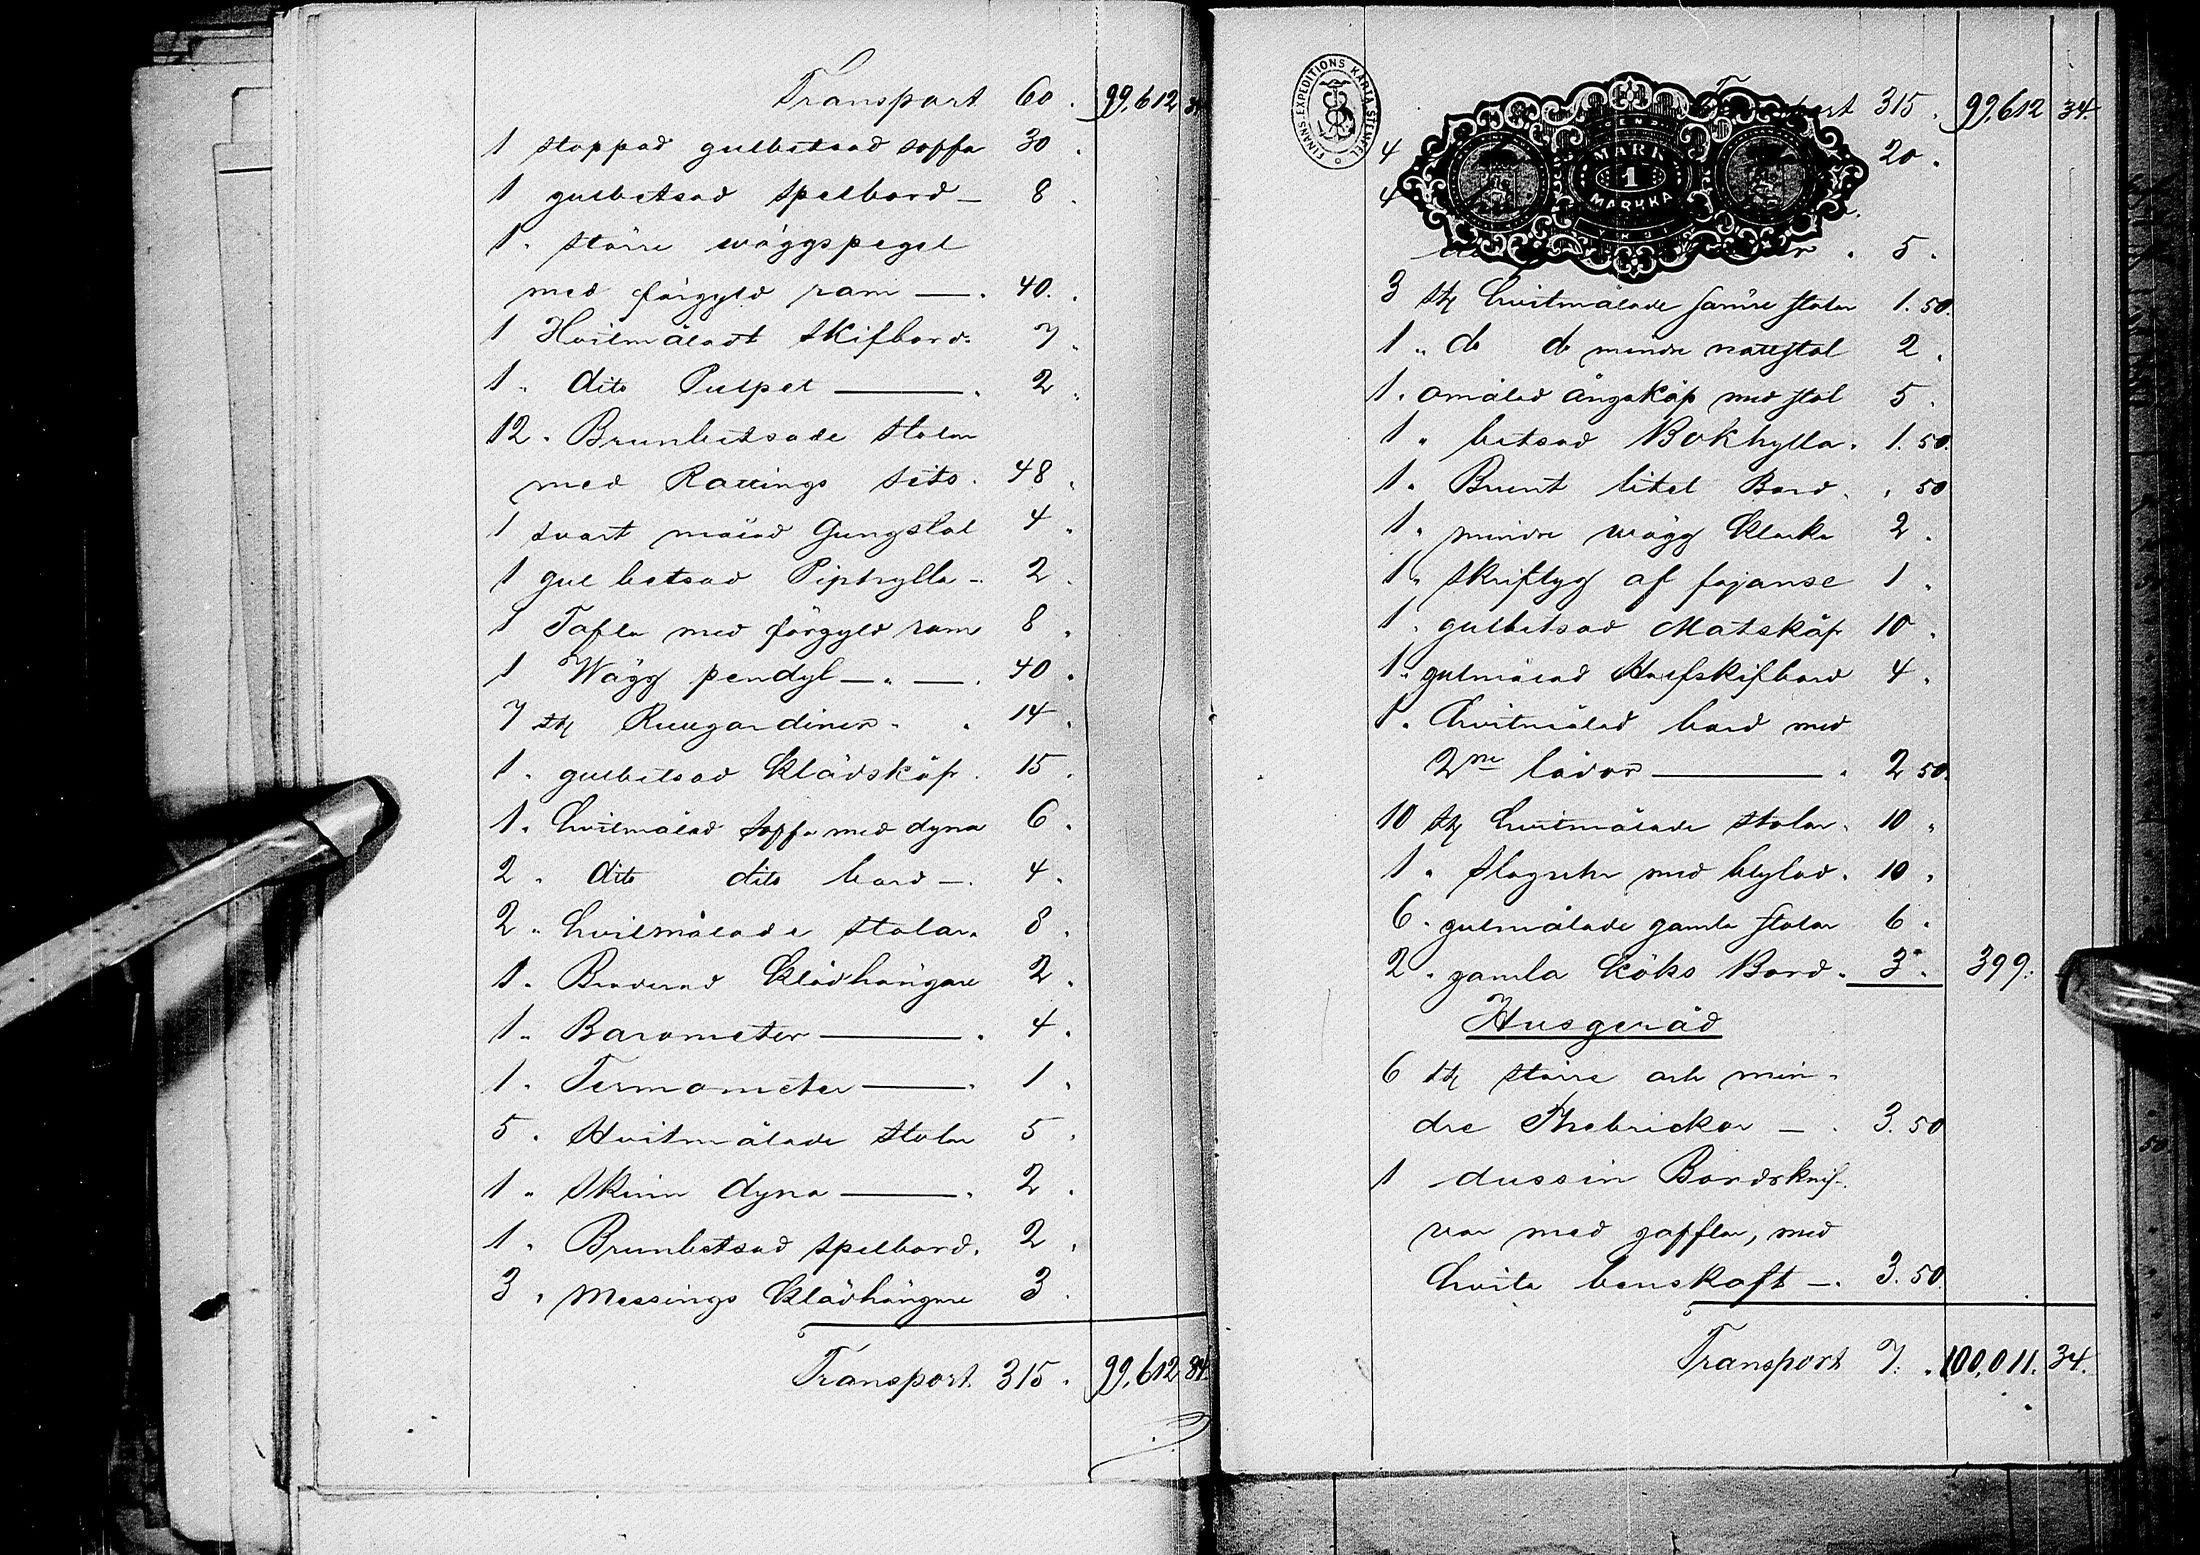 Transport 60. 99,612 34
1 stoppad gulbetsad soffa 30.
1 gulbetsad Spelbord — 8.
1. större wäggspegel
med förgyld ram —. 40.
1 Hvitmåladt Skifbord. 7.
1. dito Pulpet —. 2.
12. Brunbetsade stolar
med Rottings sits. 48.
1 svart målad Gungstol 4.
1 gul betsad Piphylla —. 2.
1 Tafla med förgyld ram 8.
1 Wägg pendyl — " —. 40.
7 st Rullgardiner. . 14.
1. gulbetsad Klädskåp. 15.
1. hvitmålad soffa med dyna 6.
2. dito dito bord —. 4.
2. hvitmålade stolar. 8.
1. Broderad Klädhängare 2.
1. Barometer —. 4.
1. Termometer —. 1.
5. Hvitmålade Stolar 5.
1. Skinn dyna —. 2.
1. Brunbetsad spelbord. 2.
3. Messings Klädhängare 3.
Transport. 315. 99,612 34.
FINANS-EXPEDITIONS KARTA STEMPEL
MARK
1
MARKKA
315. 99,612 34.
4 20.
4
. 5.
3 st hvitmålade sämre stolar 1. 50.
1 " do do mindre nattstol 2.
1. omålad ångskåp med stol 5.
1 " betsad Bokhylla. 1. 50.
1. Brunt litet Bord. . 50
1. mindre wägg Klocka 2.
1. Skriftyg af fajanse 1.
1. gulbetsad Matskåp 10.
1. gulmålad Halfskifbord 4.
1. hvitmålad bord med
2ne lådor —. 2 50.
10 st hvitmålade stolar. 10.
1 " Slagur med blylod. 10.
6. gulmålade gamla stolar 6.
2. gamla Köks Bord. 3. 399.
Husgeråd
6 st större och min-
dre Thebrickor —. 3. 50
1 dussin Bordsknif-
var med gafflar, med
hvita benskaft —. 3. 50
Transport 7. . 100,011. 34.